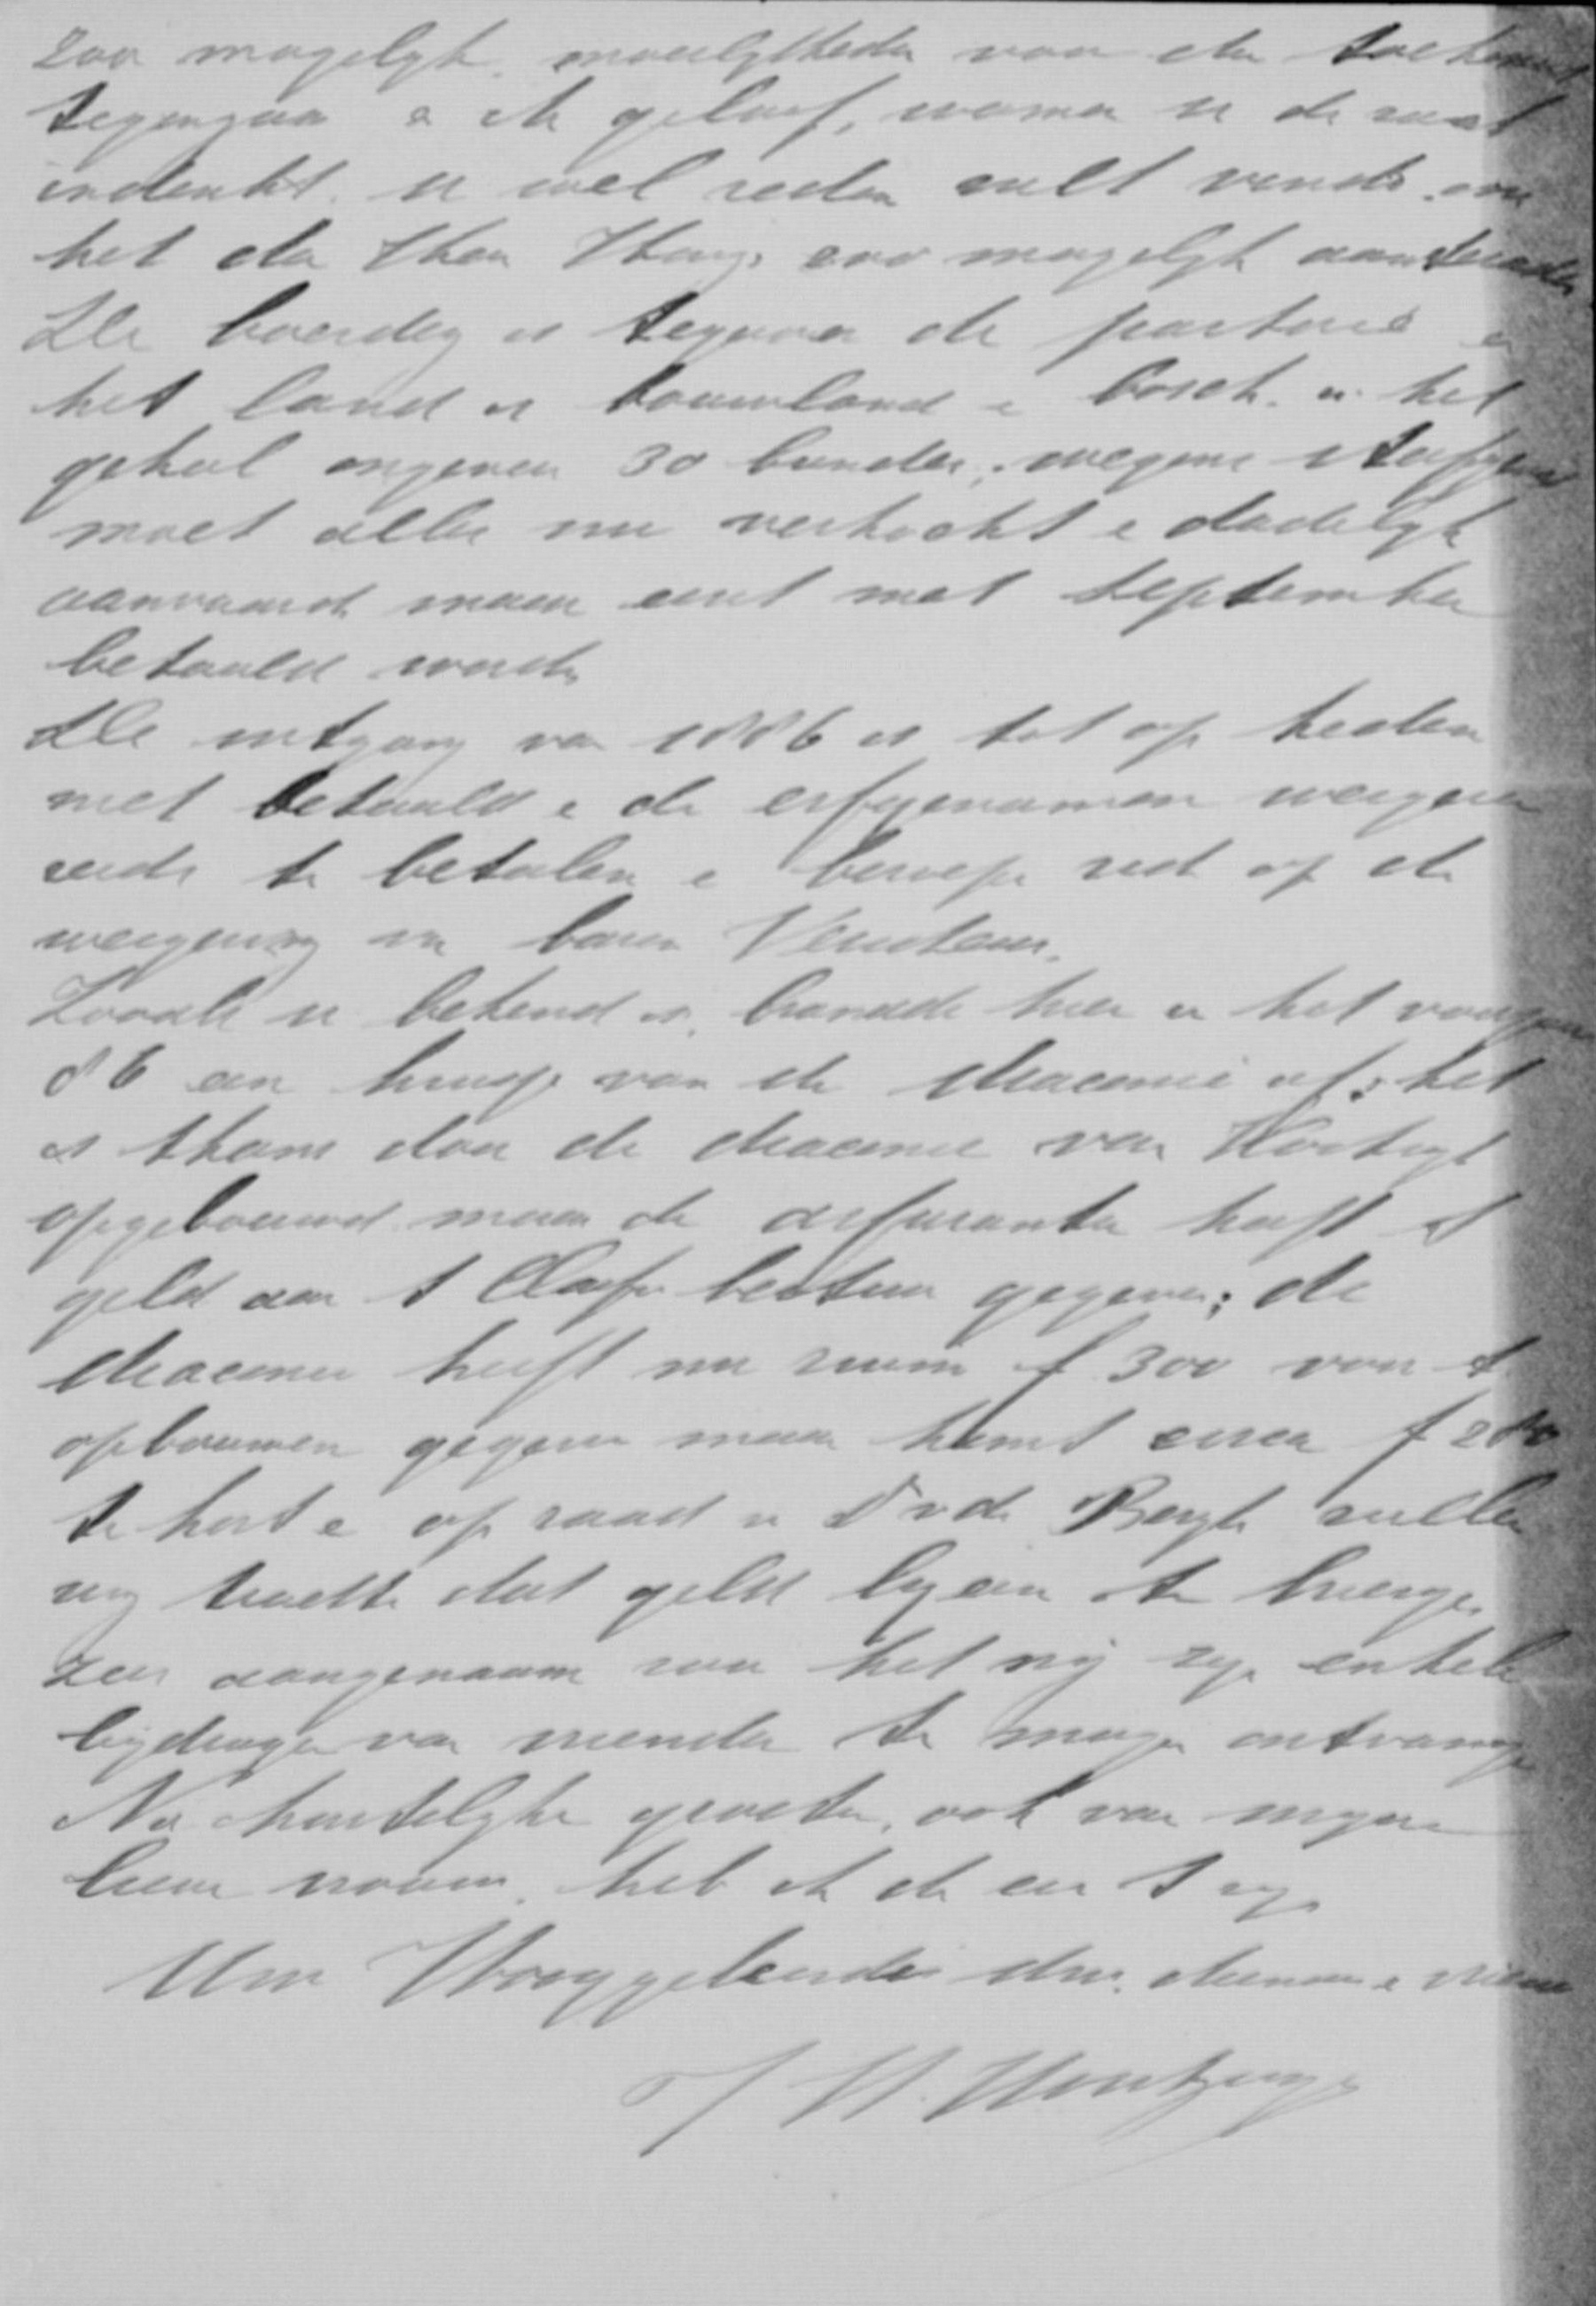 zoo mogelyk moeielykheden voor de toekomst
tegengaan & ik geloof, wanneer u de zaak
indenkt u wel reden zult vinden om
het den Heer zoo mogelyk aan te raden
De boerdery is tegenover de pastorie &
het land is bouwland & bosch. in het
geheel ongeveer 30 bunder; wegens sterfgeval
moet alles nu verkocht & dadelyk
aanvaard maar eerst met September
betaald worden
De uitgang van 1886 is tot op heden
niet betaald & de erfgenamen weigeren
reeds te betalen & beroepen zich op de
weigering van baron
Zooals u bekend is, brandde hier in het voorjaar
86 een huisje van de diaconie af; het
is thans door de diaconie van
opgebouwd maar de assurantie heeft 't
geld aan 't bestuur gegeven; de
diaconie heeft nu ruim f 300 voor 't
opbouwen gegeven maar komt circa f
te kort & op raad v Dr vd Bergh zullen
wy trachten dat geld byeen te brengen
zeer aangenaam zou het my zyn enkele
bydragen van vrienden te mogen ontvangen
Na hartelyke groeten, ook van myne
lieve vrouw, heb ik de eer te zyn
Uw Hooggeleerde dw. dienaar & vriend